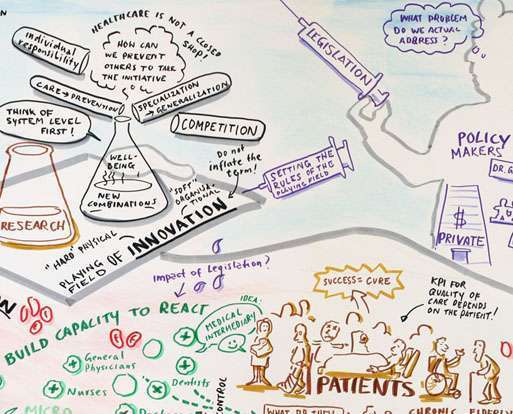 HEALTHCARE IS NOT A CLOSED
SHOP!
Individual
responsibility
HOW CAN
WE PREVENT
OTHERS TO TAKE
THE INITIATIVE
CARE → PREVENTION
SPECIALIZATION
→ GENERALIZATION
COMPETITION
THINK OF
SYSTEM LEVEL
FIRST!
WELL-
BEING!
NEW
COMBINATIONS
RESEARCH
Do not
inflate the
term!
"SOFT"
ORGANISA-
TIONAL
"HARD" PHYSICAL
PLAYING
FIELD OF INNOVATION
LEGISLATION
SETTING THE
RULES OF THE
PLAYING FIELD
WHAT PROBLEM
DO WE ACTUAL
ADDRESS?
POLICY
MAKERS
DR. G
$
PRIVATE
Impact of Legislation?
BUILD CAPACITY TO REACT
IDEA:
MEDICAL
INTERMEDIARY
General
Physicians
Nurses
Dentists
MICRO
CONTROL
SUCCESS = CURE
KPI FOR
QUALITY OF
CARE DEPENDS
ON THE PATIENT!
PATIENTS
WHAT DO THEY
CHRONIC
ELDERLY